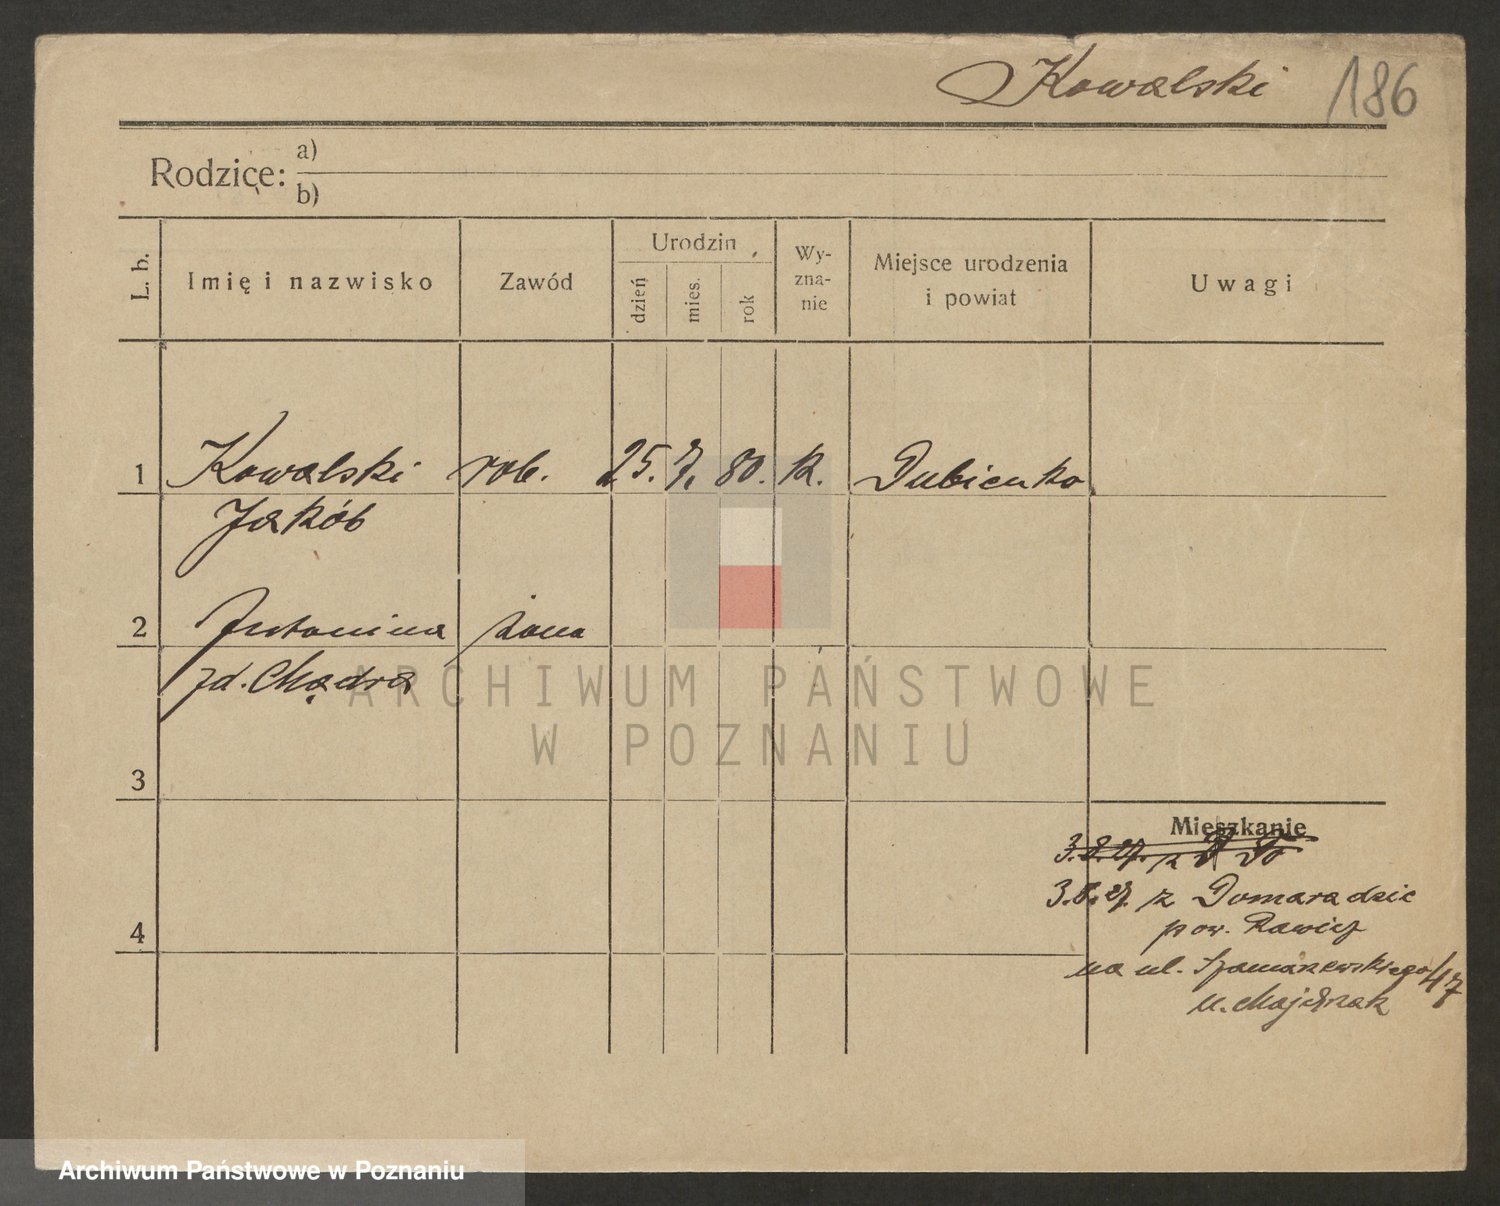 Kowalski 186
Rodzice: a)
b)
L. b.
Imię i nazwisko
Zawód
Urodzin
dzień
mies.
rok
Wy-
zna-
nie
Miejsce urodzenia
i powiat
Uwagi
1 Kowalski rob. 25. 7. 80. k. Dubienko
Jakób
2 Antonina żona
zd. Mądra
3
4
Mieszkanie
3.8.27. z
3.8.27. z Domaradzic
pow. Rawicz
na ul. /47
u. Majchrzak
ARCHIWUM PAŃSTWOWE
W POZNANIU
Archiwum Państwowe w Poznaniu